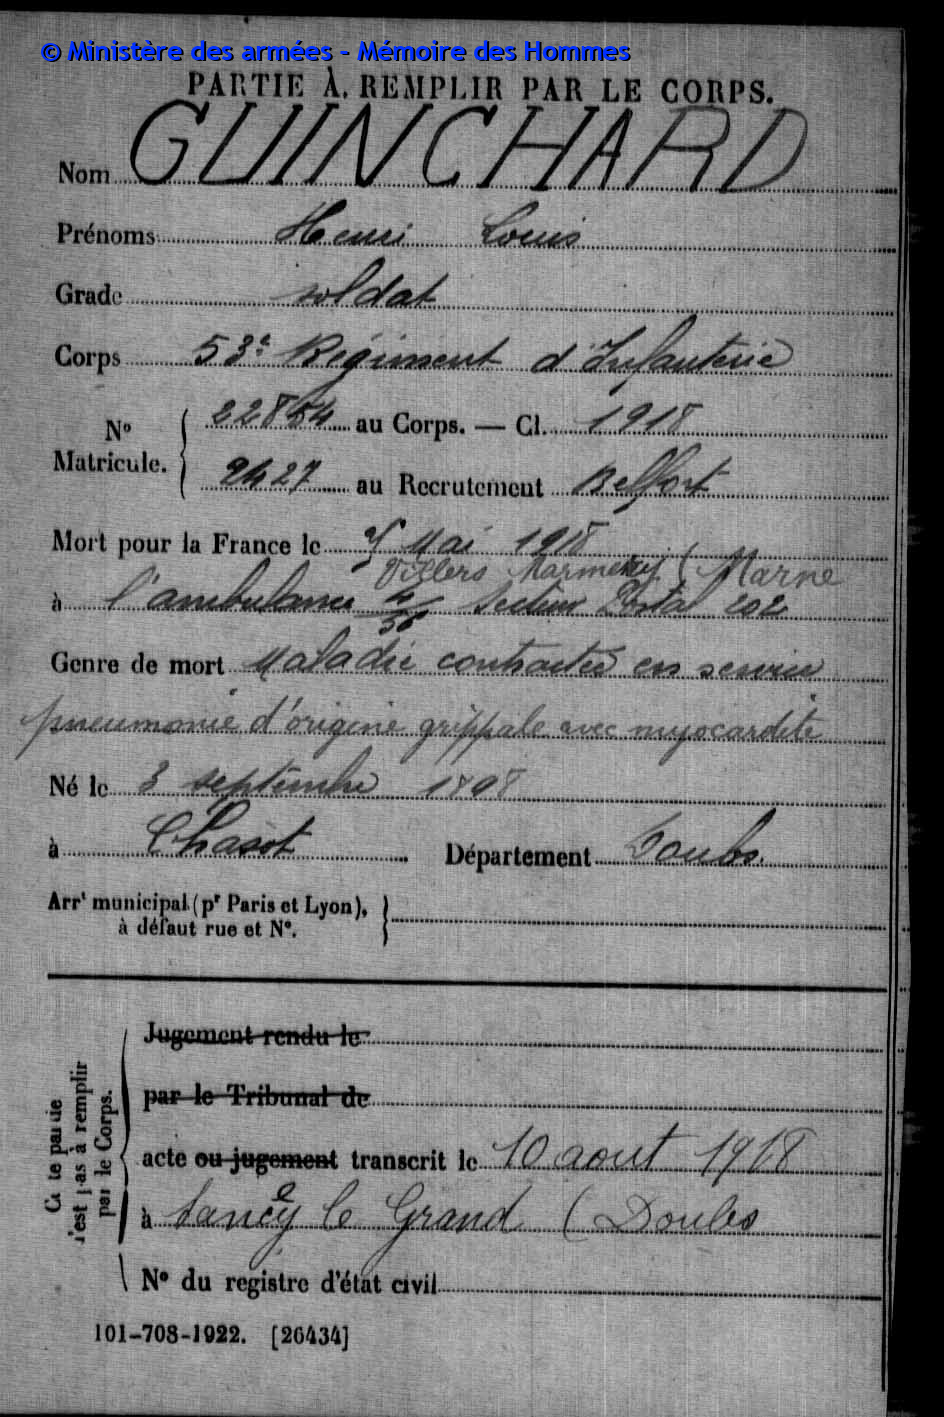 © Ministère des armées - Mémoire des Hommes
PARTIE À REMPLIR PAR LE CORPS.
Nom GUINCHARD
Prénoms Henri Louis
Grade soldat
Corps 53e Régiment d'Infanterie
N° Matricule. 22854 au Corps. — Cl. 1918
2427 au Recrutement Belfort
Mort pour la France le Mai 1918
Villers Marmery (Marne
à l'ambulance 4/56 Secteur Postal 202
Genre de mort Maladie contractée en service
pneumonie d'origine grippale avec myocardite
Né le 3 septembre 1898
à Chasot Département Doubs.
Arrt municipal (pr Paris et Lyon),
à défaut rue et N°.
Jugement rendu le
par le Tribunal de
acte ou jugement transcrit le 10 aout 1918
à Sancey le Grand (Doubs
N° du registre d'état civil
Cette partie
n'est pas à remplir
par le Corps.
101-708-1922. [26434]